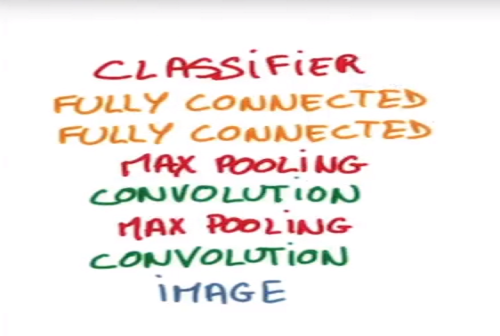 CLASSIFIER
FULLY CONNECTED
FULLY CONNECTED
MAX POOLING
CONVOLUTION
MAX POOLING
CONVOLUTION
IMAGE